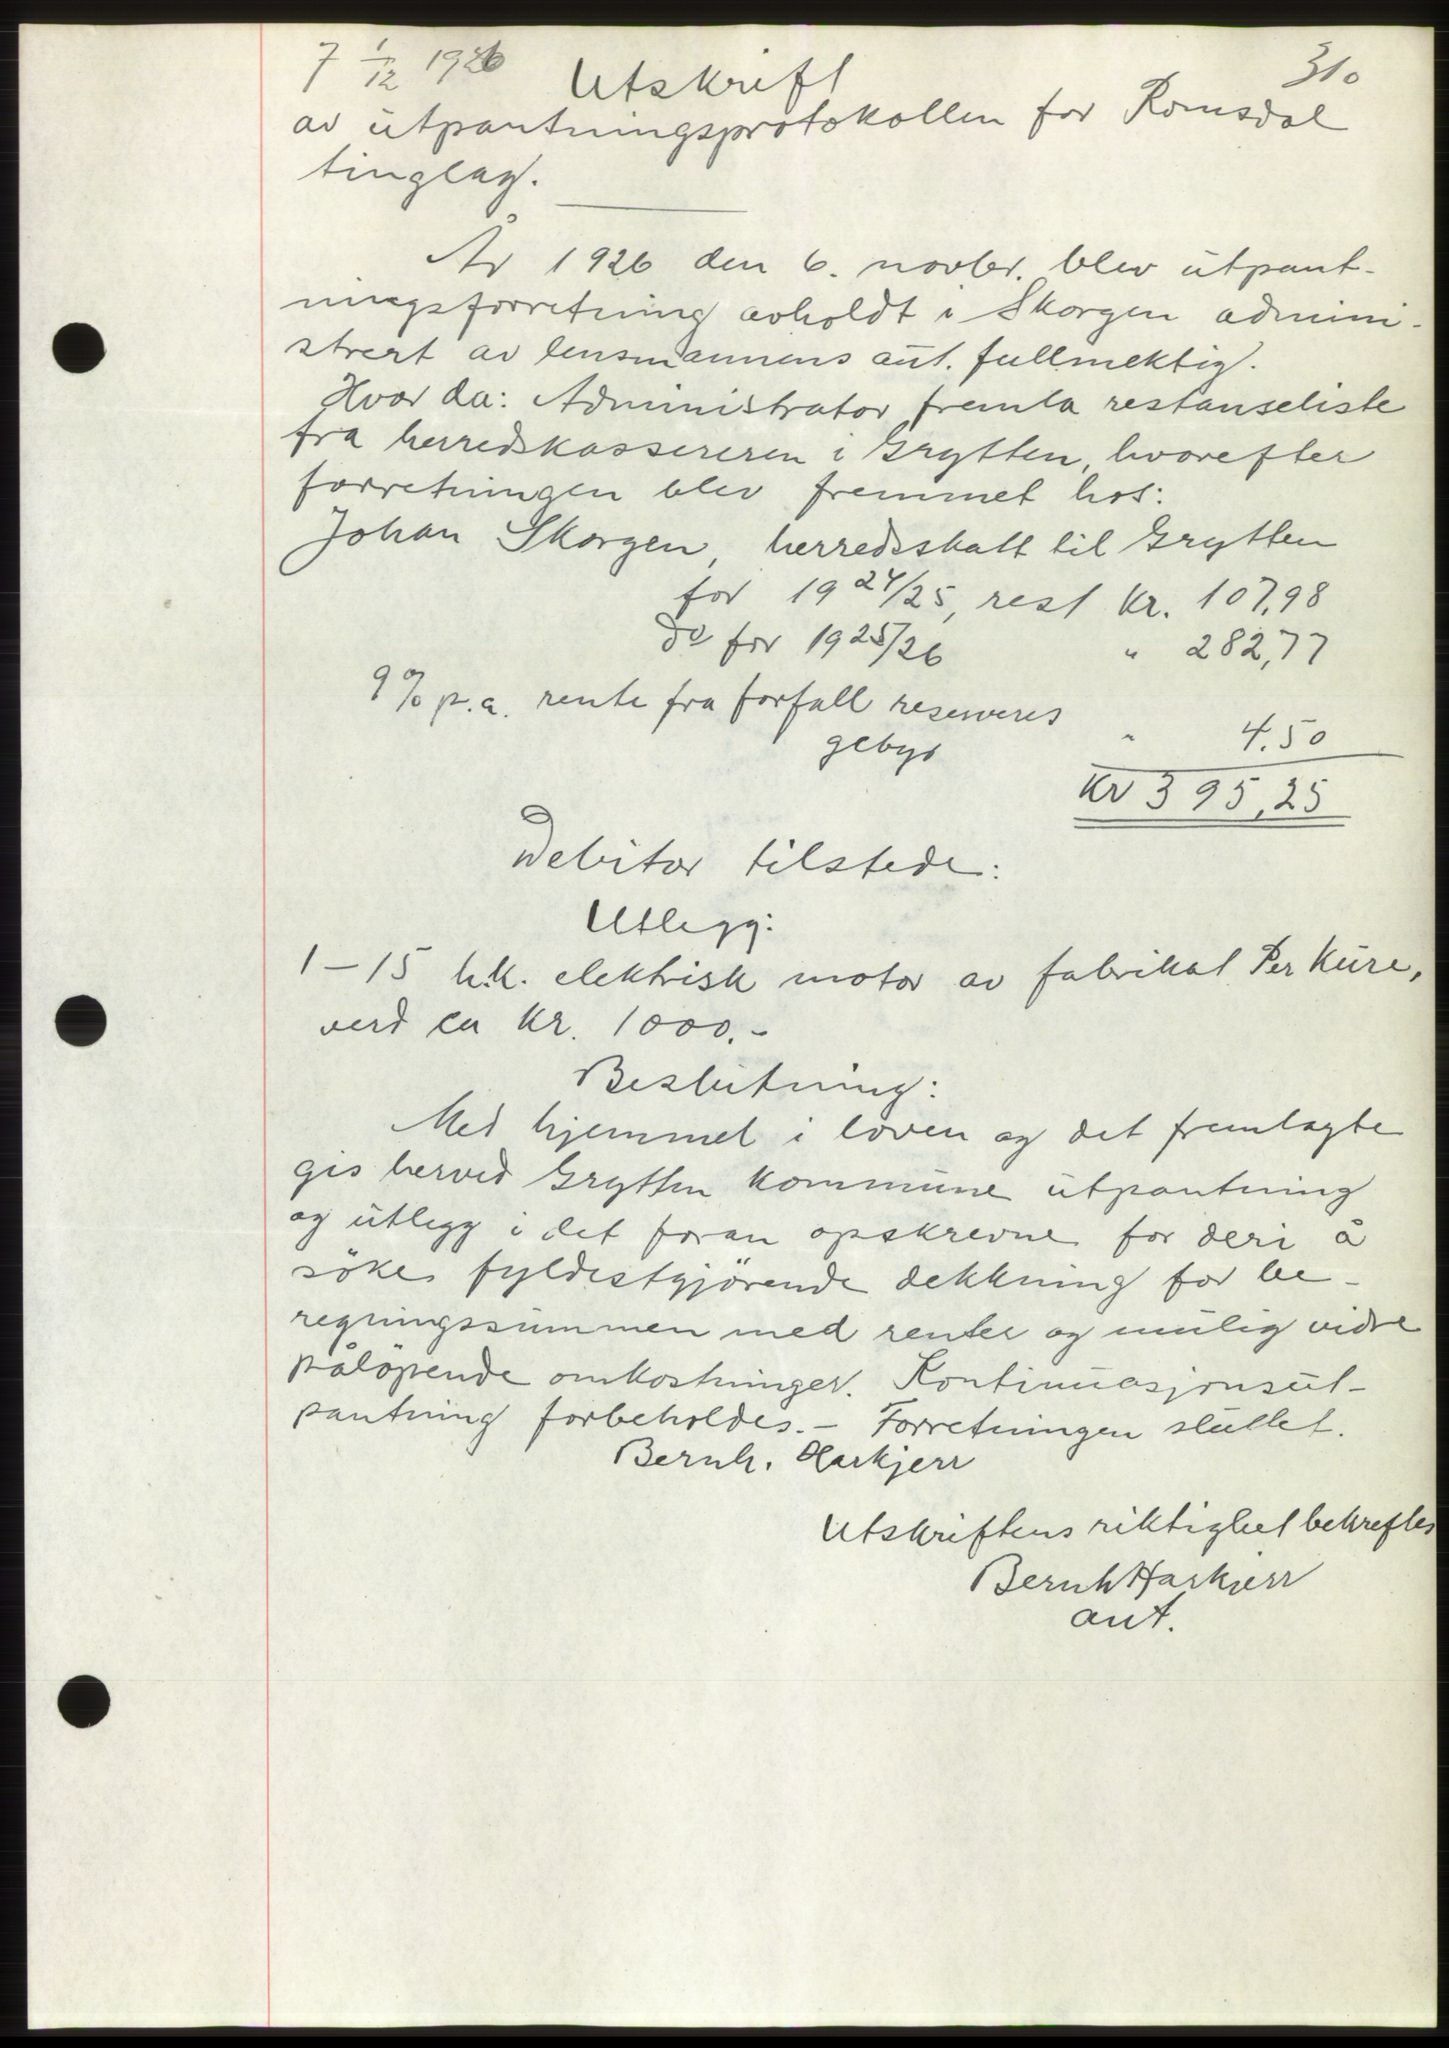 7 1/12 1926
310
Utskrift
av utpantningsprotokollen for Romsdal
tinglag.
År 1926 den 6. novbr. blev utpant-
ningsforretning avholdt i Skorgen admini-
strert av lensmannens aut. fullmektig.
Hvor da: Administrator fremla restanseliste
fra herredskassereren i Grytten, hvorefter
forretningen blev fremmet hos:
Johan Skorgen, herredsskatt til Grytten
for 1924/25, rest kr. 107,98
do for 1925/26 " 282,77
9 % p.a. rente fra forfall reserveres
gebyr " 4.50
kr 395,25
Debitor tilstede:
Utlegg:
1 – 15 h.k. elektrisk motor av fabrikat Per Kure,
verd ca kr. 1000.-
Beslutning:
Med hjemmel i loven og det fremlagte
gis herved Grytten kommune utpantning
og utlegg i det foran opskrevne for deri å
söke fyldestgjörende dekkning for be-
regningssummen med renter og mulig vidre
pålöpende omkostninger. Kontinuasjonsut-
pantning forbeholdes. – Forretningen sluttet.
Bernh. Harkjerr
Utskriftens riktighet bekreftes
Bernh Harkjerr
aut.